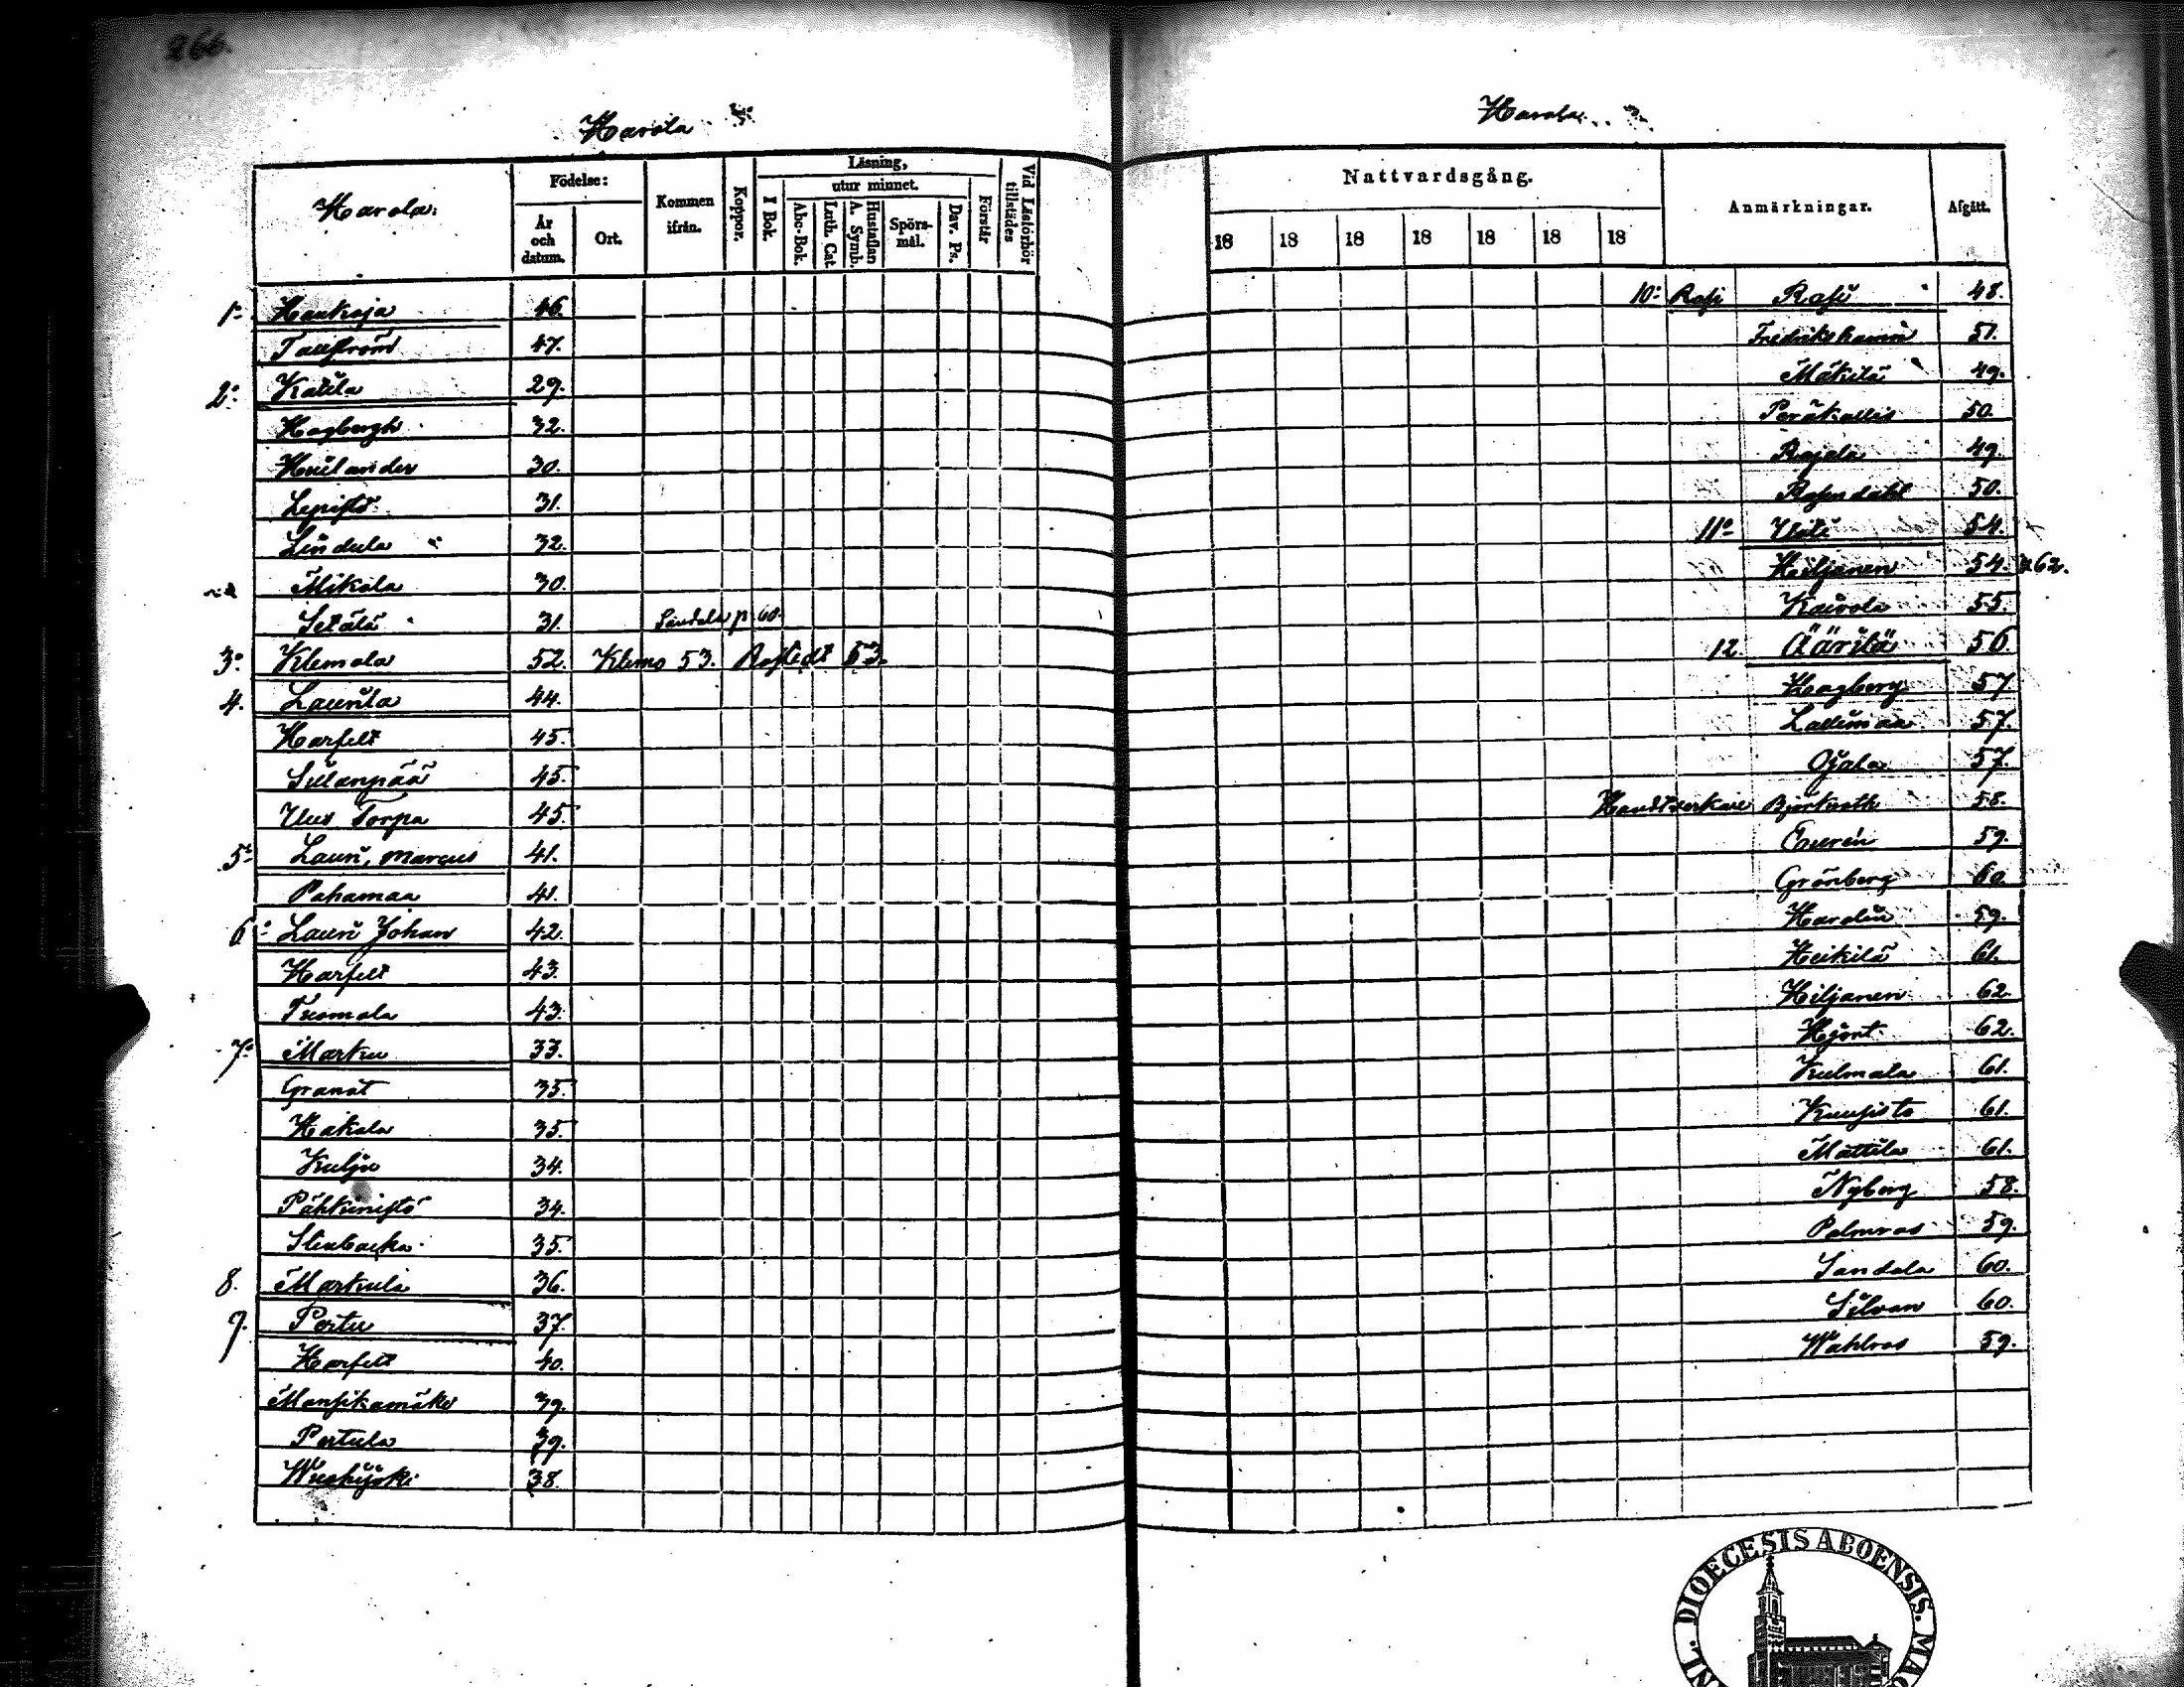 266.
Harola
Harola
Harola.
Födelse:
År och datum.
Ort.
Kommen ifrån.
Koppor.
Läsning,
utur minnet.
I Bok.
Abc-Bok.
Luth. Cat.
Hustaflan A. Symb.
Spörs-mål.
Dav. Ps.
Förstår
Vid Läsförhör tillstädes
Nattvardsgång.
18 18 18 18 18 18 18
Anmärkningar.
Afgått.
1:o Haukoja 46.
47.
2:o Katila 29.
Hagbergh 32.
30.
Lepistö 31.
Lindula 32.
Mikola 30.
Setälä 31. Sandala p. 60.
3:o Klemola 52. Klemo 53. 53.
4. Laurila 44.
Harfelt 45.
Sillanpää 45.
Uus Torpa 45.
5:o Lauri, Marcus 41.
Pahamaa 41.
6:o Lauri Johan 42.
Harfelt 43.
Tuomola 43.
7:o Marku 33.
Granat 35.
Hakala 35.
Kulju 34.
Pähkinistö 34.
Stenbacka 35.
8. Markula 36.
9. Pertu 37.
Harfelt 40.
Mansikamäki 39.
Pertula 39.
38.
10:o Rasi Rasi 48.
Fredrikshamn 51.
Mäkilä 49.
Peräkallio 50.
Rajala 49.
Rosendahl 50.
11:o 54.
Hiljanen 54. 62.
Kaivola 55.
12. Äärilä 56.
Hagberg 57
Lallimaa 57.
Ojala 57.
Handtverkare Björkroth 58.
59.
Grönberg 60.
Hardin 59.
Heikilä 61.
Hiljanen 62.
Hjort 62.
Kulmala 61.
Kuusisto 61.
Mattila 61.
Nyberg 58.
Palmroos 59.
Sandala 60.
Silvan 60.
Wahlroos 59.
DIOECESIS ABOENSIS.